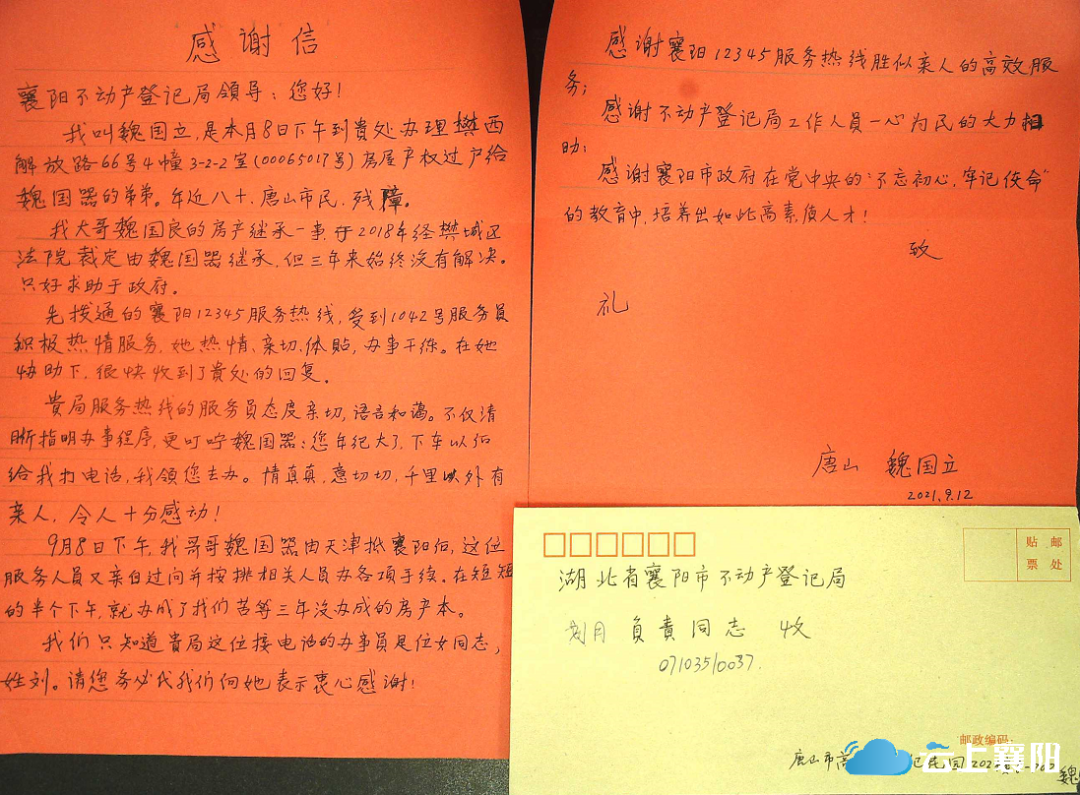 感谢信
襄阳不动产登记局领导：您好！
我叫魏国立，是本月8日下午到贵处办理樊西
解放路66号4幢3-2-2室(00065017号)房屋产权过户给
魏国器的弟弟。年近八十，唐山市民，残障。
我大哥魏国良的房产继承一事，于2018年经樊城区
法院裁定由魏国器继承，但三年来始终没有解决。
只好求助于政府。
先拨通的襄阳12345服务热线，受到1042号服务员
积极热情服务，她热情、亲切、体贴，办事干练。在她
协助下，很快收到了贵处的回复。
贵局服务热线的服务员态度亲切，语言和蔼。不仅清
晰指明办事程序，更叮咛魏国器：您年纪大了，下车以后
给我打电话，我领您去办。情真真，意切切，千里以外有
亲人，令人十分感动！
9月8日下午，我哥哥魏国器由天津抵襄阳后，这位
服务人员又亲自过问并按排相关人员办各项手续。在短短
的半个下午，就办成了我们苦等三年没办成的房产本。
我们只知道贵局这位接电话的办事员是位女同志，
姓刘。请您务必代我们向她表示衷心感谢！
感谢襄阳12345服务热线胜似亲人的高效服
务；
感谢不动产登记局工作人员一心为民的大力相
助；
感谢襄阳市政府在党中央的“不忘初心，牢记使命”
的教育中，培养出如此高素质人才！
致
礼
唐山 魏国立
2021.9.12
贴 邮
票 处
湖北省襄阳市不动产登记局
负责同志 收
07103510037.
邮政编码：
唐山市
云上襄阳
魏